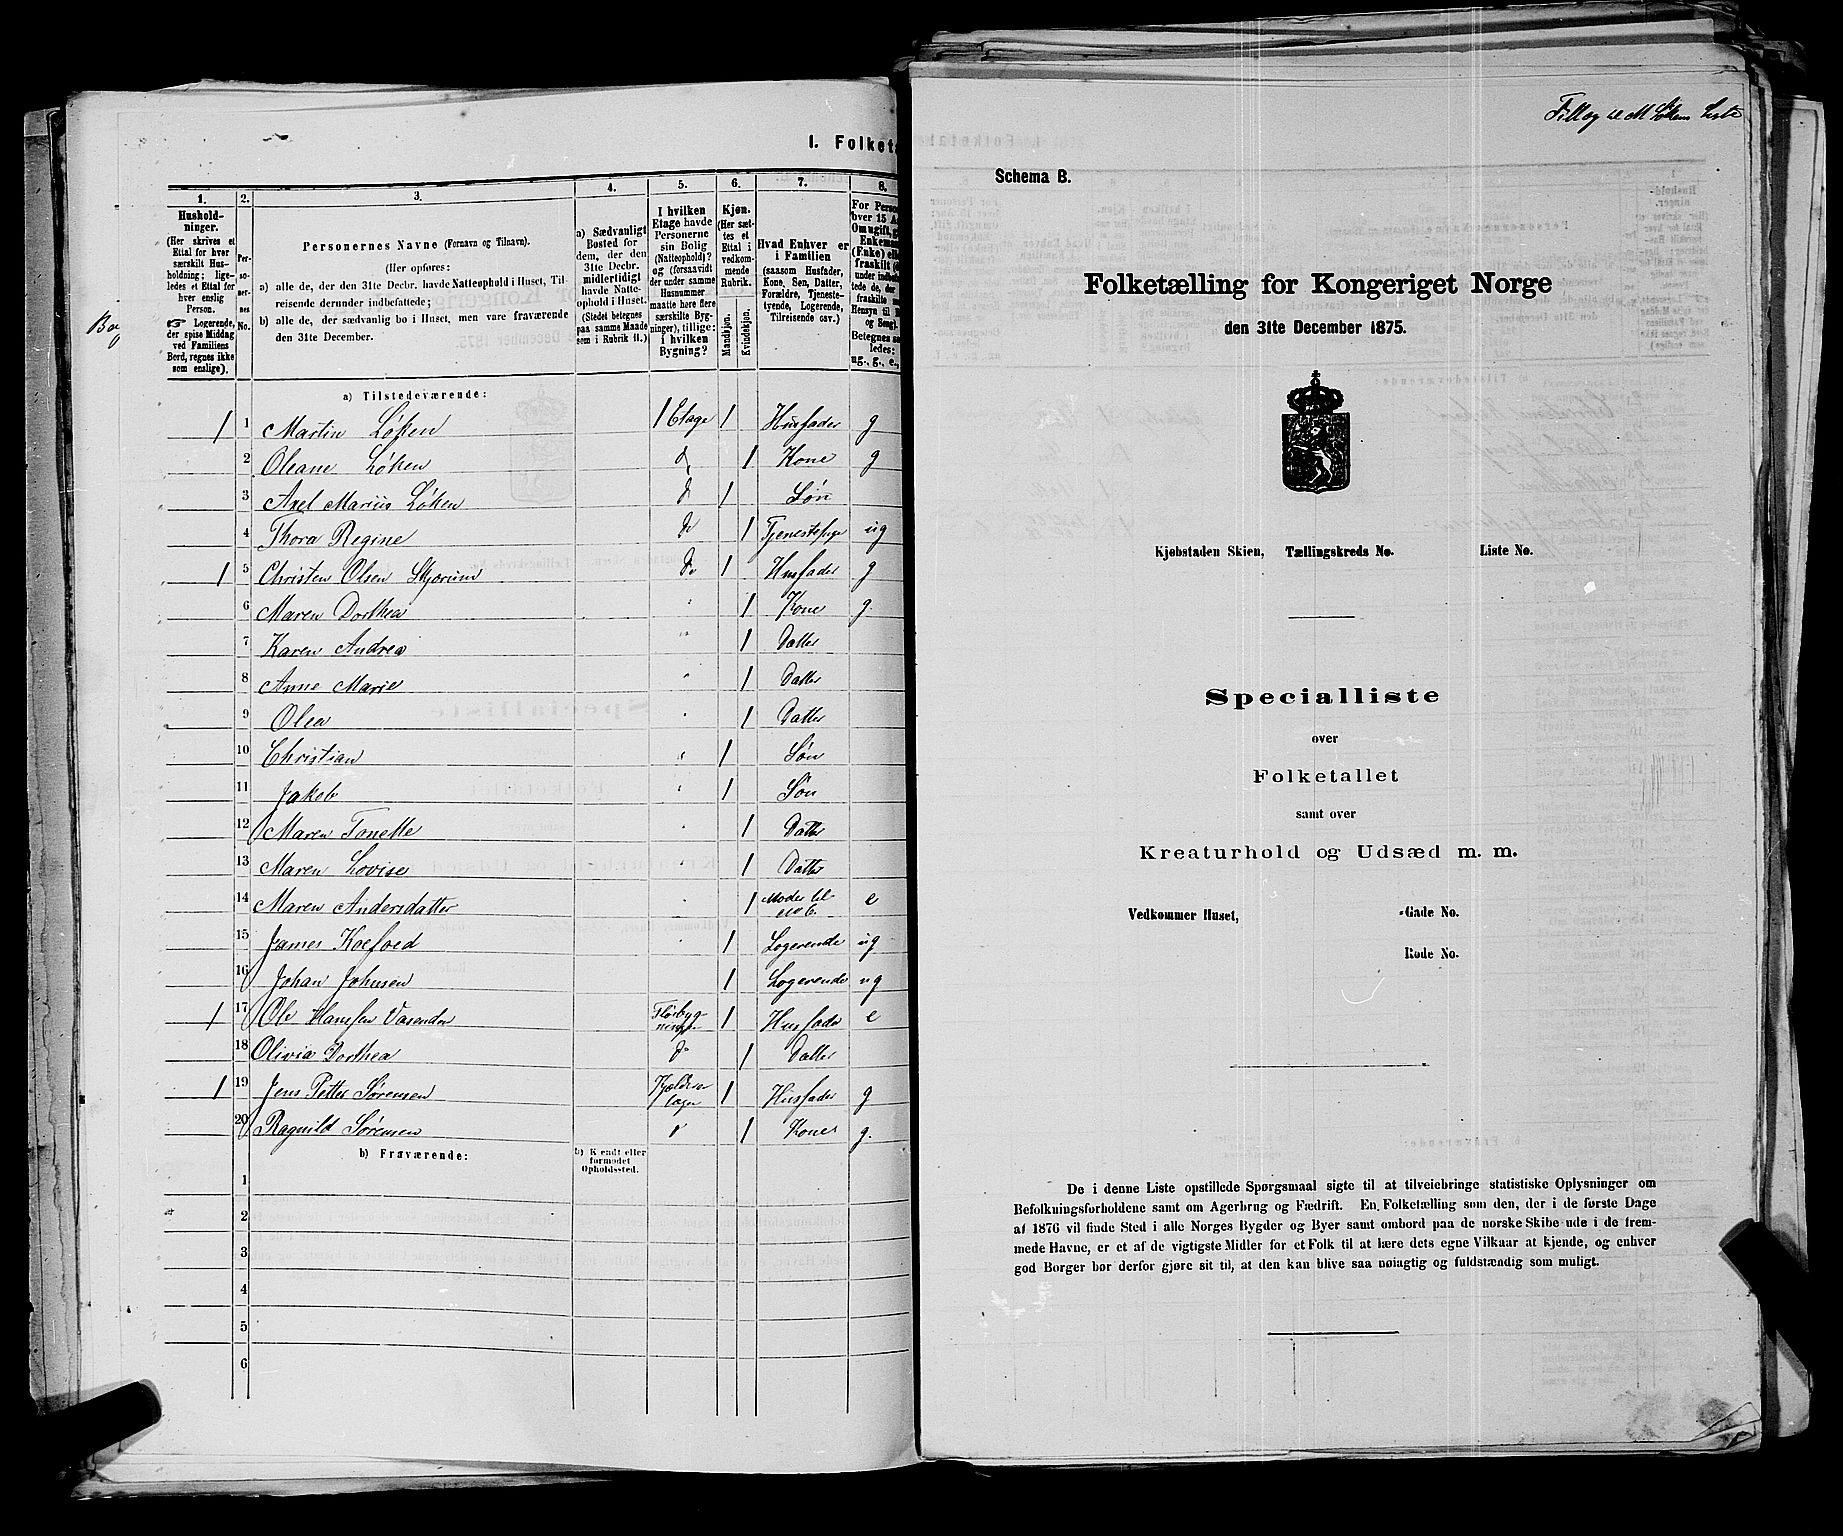 I. Folketa
1.
2.
3.
4.
5.
6.
7.
8.
Hushold-
ninger.
(Her skrives et
Ettal for hver
særskilt Hus-
holdning; lige-
ledes et Ettal for
hver enslig
Person.
☞ Logerende,
der spise Middag
ved Familiens
Bord, regnes ikke
som enslige).
Per-
so-
ner-
nes
No.
Personernes Navne (Fornavn og Tilnavn).
(Her opføres:
a) alle de, der den 31te Decbr. havde Natteophold i Huset, Til-
reisende derunder indbefattede;
b) alle de, der sædvanlig bo i Huset, men vare fraværende
den 31te December.
a) Sædvanligt
Bosted for
dem, der den
31te Decbr.
midlertidigt
havde Natte-
ophold i Huset.
(Stedet betegnes
paa samme Maade
som i Rubrik 11.)
I hvilken
Etage havde
Personerne
sin Bolig
(Natteophold)?
og (forsaavidt
der under samme
Husnummer
maatte høre flere
særskilte Byg-
ninger), tillige:
i hvilken
Bygning?
Kjøn.
(Her sæt-
tes et
Ettal i
vedkom-
mende
Rubrik.
Mandkjøn.
Kvindekjøn.
Hvad Enhver er
i Familien
(saasom Husfader,
Kone, Søn, Datter,
Forældre, Tjeneste-
tyende, Logerende,
Tilreisende osv.)
For Perso
over 15 A
Om ugift, g
Enkema
(Enke) ell
fraskilt
ug., g., e.,
a) Tilstedeværende:
1 1 Martin Løken 1 Etage 1 Husfader g
2 Oleane Løken do 1 Kone g
3 Axel Marius Løken do 1 Søn
4 Thora Regine do 1 Tjenestepige ug
1 5 Christen Olsen Skjorum do 1 Husfader g
6 Maren Dorthea " 1 Kone g.
7 Karen Andrea " 1 Datter
8 Anne Marie " 1 Datter
9 Olea " 1 Datter
10 Christian " 1 Søn
11 Jakob " 1 Søn
12 Maren Tonette " 1 Datter
13 Maren Lovise " 1 Datter
14 Maren Andersdatter " 1 Moder til no 6. e
15 James Koefoed " 1 Logerende ug
16 Johan Johnsen 1 Logerende ug
1 17 Ole Hansen 1 Husfader e
18 Olivia Dorthea do 1 Datter
1 19 Jens Petter Sørensen 1 Husfader g
20 Ragnild Sørensen " 1 Kone g.
b) Fraværende:
b) Kjendt eller
formodet
Opholdssted.
1
2
3
4
5
6
Tillæg til M Løkens Liste
Schema B.
Folketælling for Kongeriget Norge
den 31te December 1875.
Kjøbstaden Skien, Tællingskreds No. Liste No.
Specialliste
over
Folketallet
samt over
Kreaturhold og Udsæd m. m.
Vedkommer Huset, -Gade No.
Rode No.
De i denne Liste opstillede Spørgsmaal sigte til at tilveiebringe statistiske Oplysninger om
Befolkningsforholdene samt om Agerbrug og Fædrift. En Folketælling som den, der i de første Dage
af 1876 vil finde Sted i alle Norges Bygder og Byer samt ombord paa de norske Skibe ude i de frem-
mede Havne, er et af de vigtigste Midler for et Folk til at lære dets egne Vilkaar at kjende, og enhver
god Borger bør derfor gjøre sit til, at den kan blive saa nøiagtig og fuldstændig som muligt.